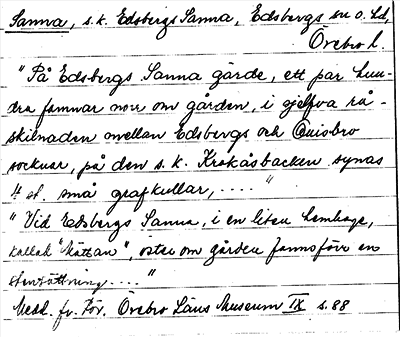 Sanna, s.k. Edsbergs Sanna, Edsbergs sn o. hd,
Örebro l.
"På Edsbergs Sanna gärde, ett par hun-
dra famnar norr om gården, i sjelfva rå-
skilnaden mellan Edsbergs och Quisbro
socknar, på den s.k. Krokåsbacken synas
st. små grafkullar, ...."
"Vid Edsbergs Sanna, i en liten hemhage,
kallad "Kättan", öster om gården fanns förr en
stensättning...."
Medd. fr. För. Örebro Läns Museum IX s. 88